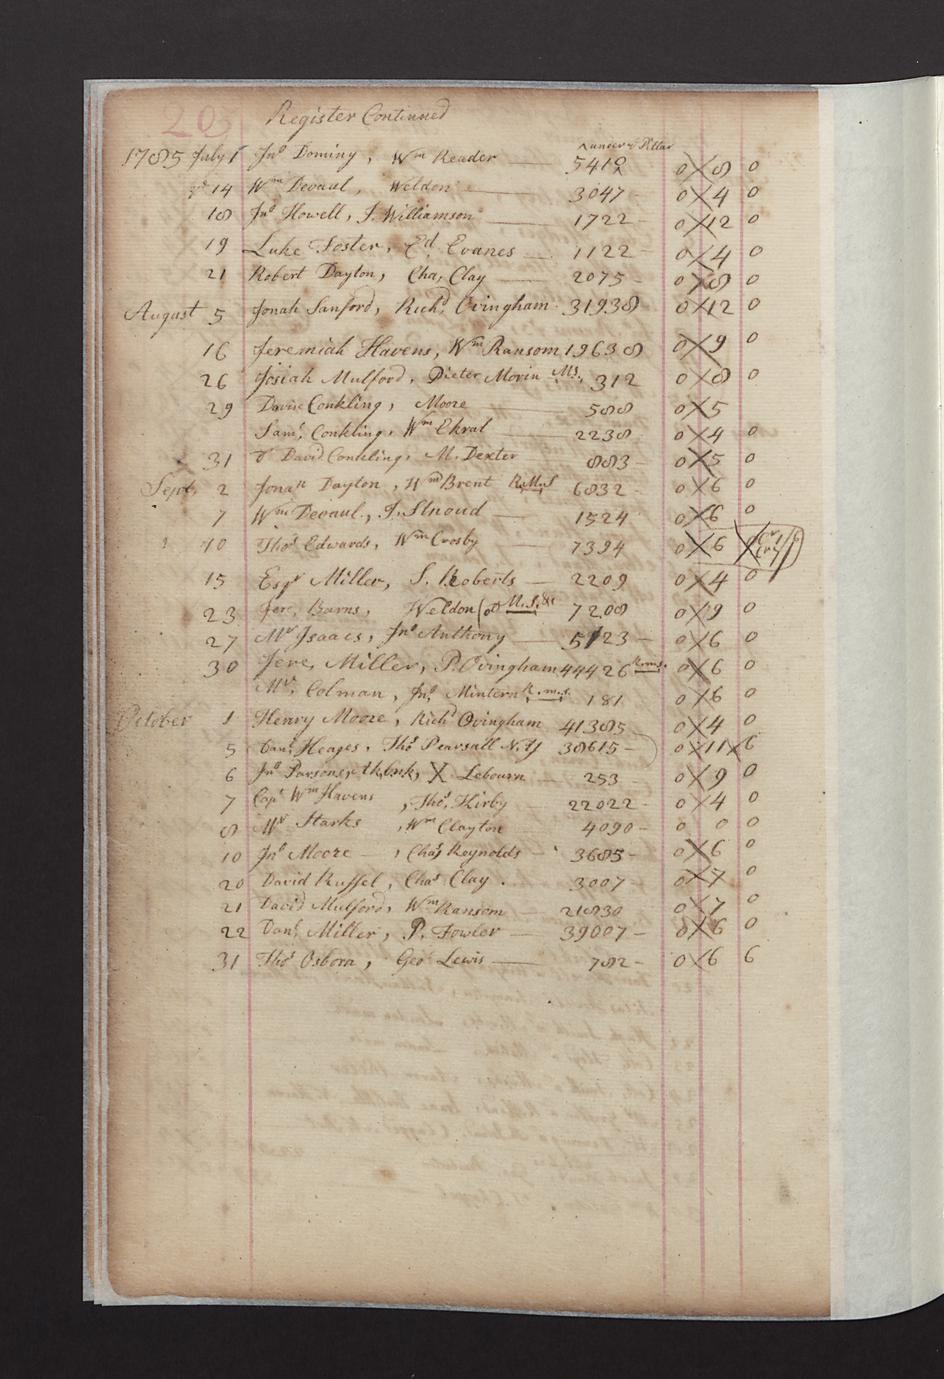 203 Register Continued
1785 July 1 Jnº Dominy, Wm Reader — 5412 0 8 0
14 Wm Devaul, Weldon — 3047 - 0 4 0
18 Jnº Howell, J. Williamson — 1722 - 0 12 0
19 Luke Foster, Ed. Evanes — 1122 - 0 4 0
21 Robert Dayton, Cha, Clay — 2075 - 0 8 0
August 5 Jonah Sanford, Richd. Ovingham - 31938 0 12 0
16 Jeremiah Havens, Wm Ransom 19638 0 9 0
26 Josiah Mulford, Dieter Morin Ms. 312 0 8 0
29 Davie Conkling, Moore — 588 0 5
Saml, Conkling, Wm Ekral — 2238 0 4 0
31 David Conkling, M. Dexter 883 - 0 5 0
Sept. 2 Jonan Dayton, Wm Brent R.M.S 6832 - 0 6 0
7 Wm Devaul, J. Stroud — 1524 0 6 0
10 Thos Edwards, Wm Crosby — 7394 0 6
15 Esqr Miller, S. Roberts — 2209 0 4 0
23 Jere, Barns, Weldon M.S. &c 7208 0 9 0
27 Mr Isaacs, Jnº Anthony — 5123 - 0 6 0
30 Jere, Miller, P. Ovingham 44426 R.m.s. 0 6 0
Mr. Colman, Jnº Mintern R.m.s. 181 0 6 0
October 1 Henry Moore, Richd Ovingham 41385 0 4 0
5 Danl Heages, Thos Pearsall N.Y 38615 - 0 11 X 6
6 Jnº Parsons, X Lebourn — 253 - 0 9 0
7 Capt Wm Havens, Thos, Kirby — 22022 - 0 4 0
8 Mr Starks, Wm Clayton 4090 - 0 0 0
10 Jnº Moore —, Chas Reynolds - 3685 - 0 6 0
20 David Russel, Chas Clay . 3007 - 0 7 0
21 David Mulford, Wm Ransom — 21830 0 7 0
22 Danl Miller, P. Fowler — 39007 - 0 6 0
31 Thos Osborn, Geo Lewis — 782 - 0 6 6